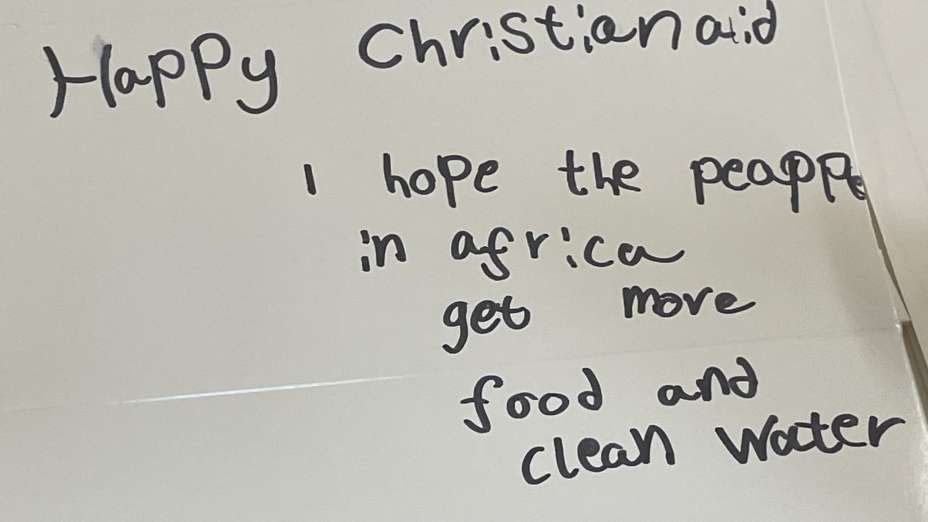 Happy Christian aid
I hope the peappe
in africa
get more
food and
clean water